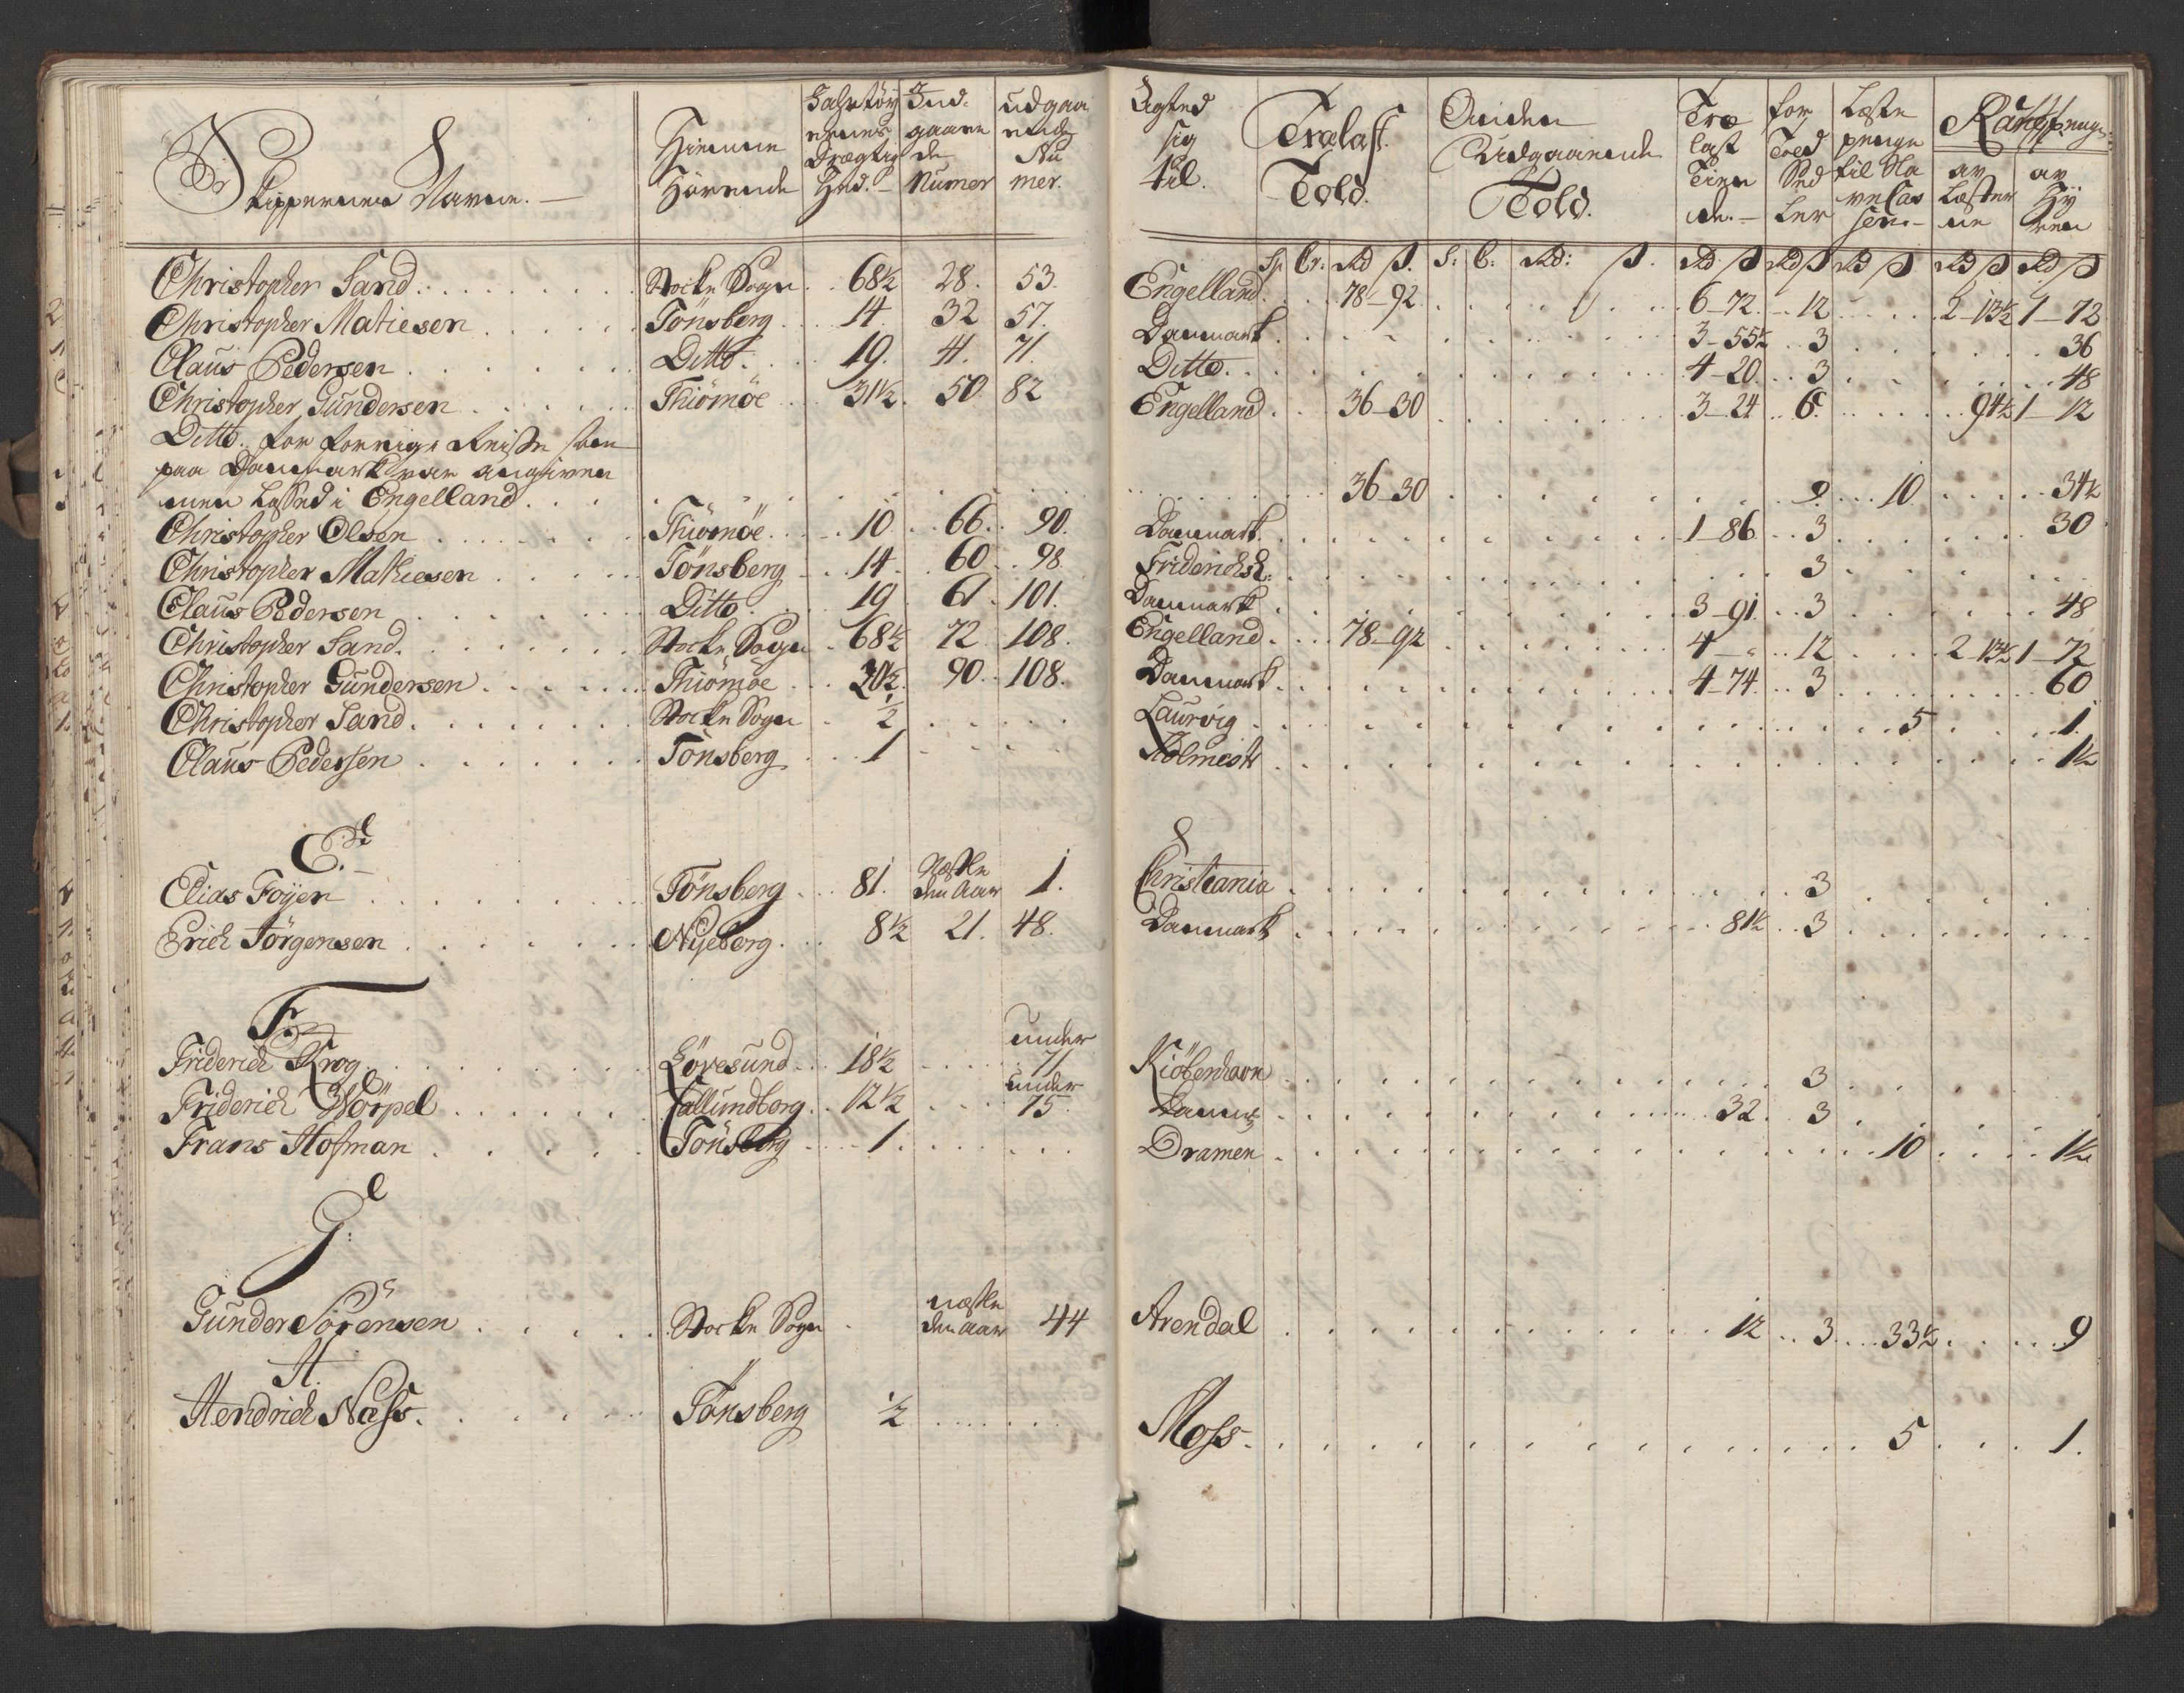 Skippernes Navne. Hiemme Hörende Fahrtöy ernes Drægtig Hed. Ind- gaaen de Numer udgaa ende Nu mer. Agted sig til. Trælast Told. Anden Udgaaende Told. Træ last Tien de. for Told Sed ler Læste penge til Ha ve Cas sen. Rang penge: av Læster ne av Hÿ ren
Rd ß. S: C: Rd: ß. Rd ß Rd ß Rd ß Rd ß Rd ß
Christopher Sand Stocke Sogn 68½ 28. 53. Engelland 78-92 6-72 12 2-13½ 1-72
Christopher Matiesen Tönsberg 14 32 57. Danmark 3-55½ 3 36
Claus Pedersen Ditto 19. 41. 71. Ditto 4-20 3 48
Christopher Gundersen Thiömöe 31½ 50 82 Engelland 36-30 3-24 6 94½ 1-12
Ditto. for forrige Reise som
paa Danmark var angiven
men Lossed i Engelland 36-30 9 10 34½
Christopher Olsen Thiömöe 10 66 90. Danmark 1-86 3 30
Christopher Mathiesen Tönsberg 14 60 98 Friderichsh: 3
Claus Pedersen Ditto 19 61 101. Danmark 3-91 3 48
Christopher Sand. Stocke Sogn 68½ 72 108. Engelland 78-92 4-" 12 2-13½ 1-72
Christopher Gundersen Thiömöe 30½ 90 108. Danmark 4-74 3 60
Christopher Sand Stocke Sogn ½ Laurvig 5 1.
Claus Pedersen Tönsberg 1 Holmestr 1½
E.
Elias Foÿen Tönsberg 81. Næste den Aar 1. Christiania 3
Erich Jörgensen Nÿeborg 8½ 21. 48. Danmark 81½ 3
F.
Friderich Krog Lövesund 18½ under 71 Kiöbenhavn 3
Friderich Wörpel Callundborg 12½ under 75 Danm 32 3
Frans Hofman Tönsberg 1 Dramen 10 1½
G:
Gunder Sörensen Stocke Sogn næste den Aar 44 Arendal 12 3 33½ 9
H.
Hendrich Næss. Tönsberg ½ Moss 5 1.